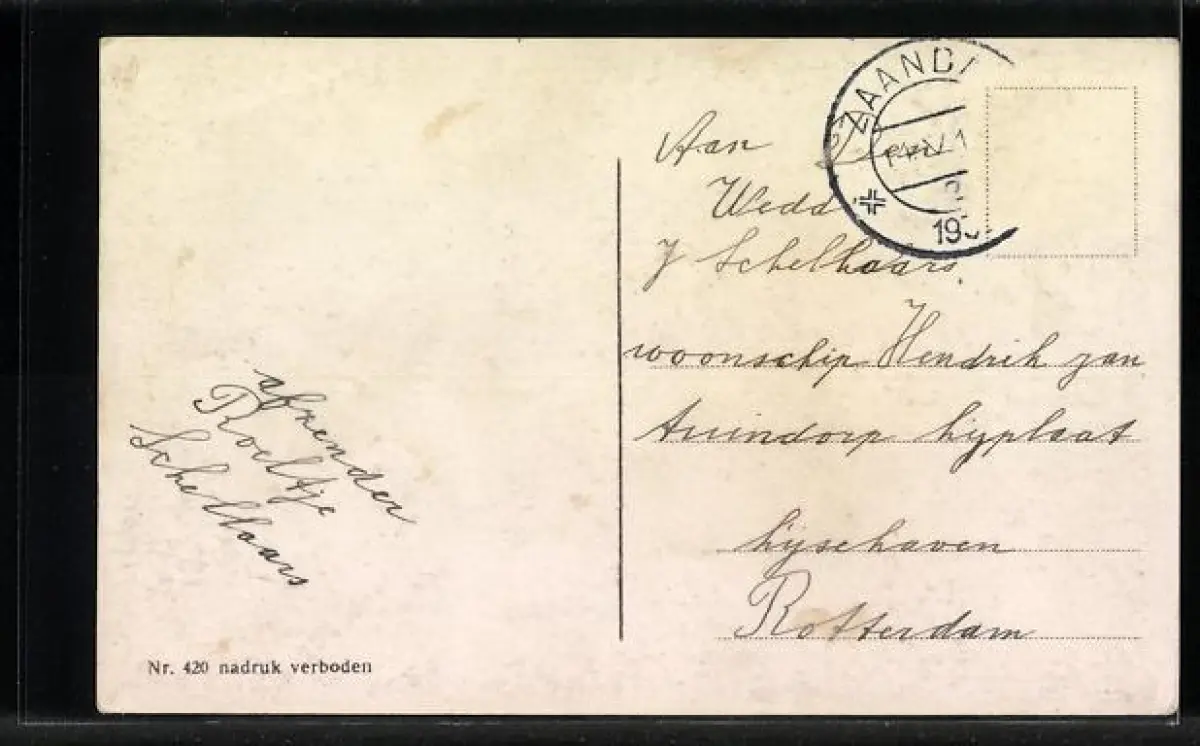 ZAAND
193
Aan
Wedd
J Schelhaars.
woonschip Hendrik zan
tuindorp hijplaat
hijsehaven
Rotterdam
afzender
Roeltje
Schelhaars
Nr. 420 nadruk verboden